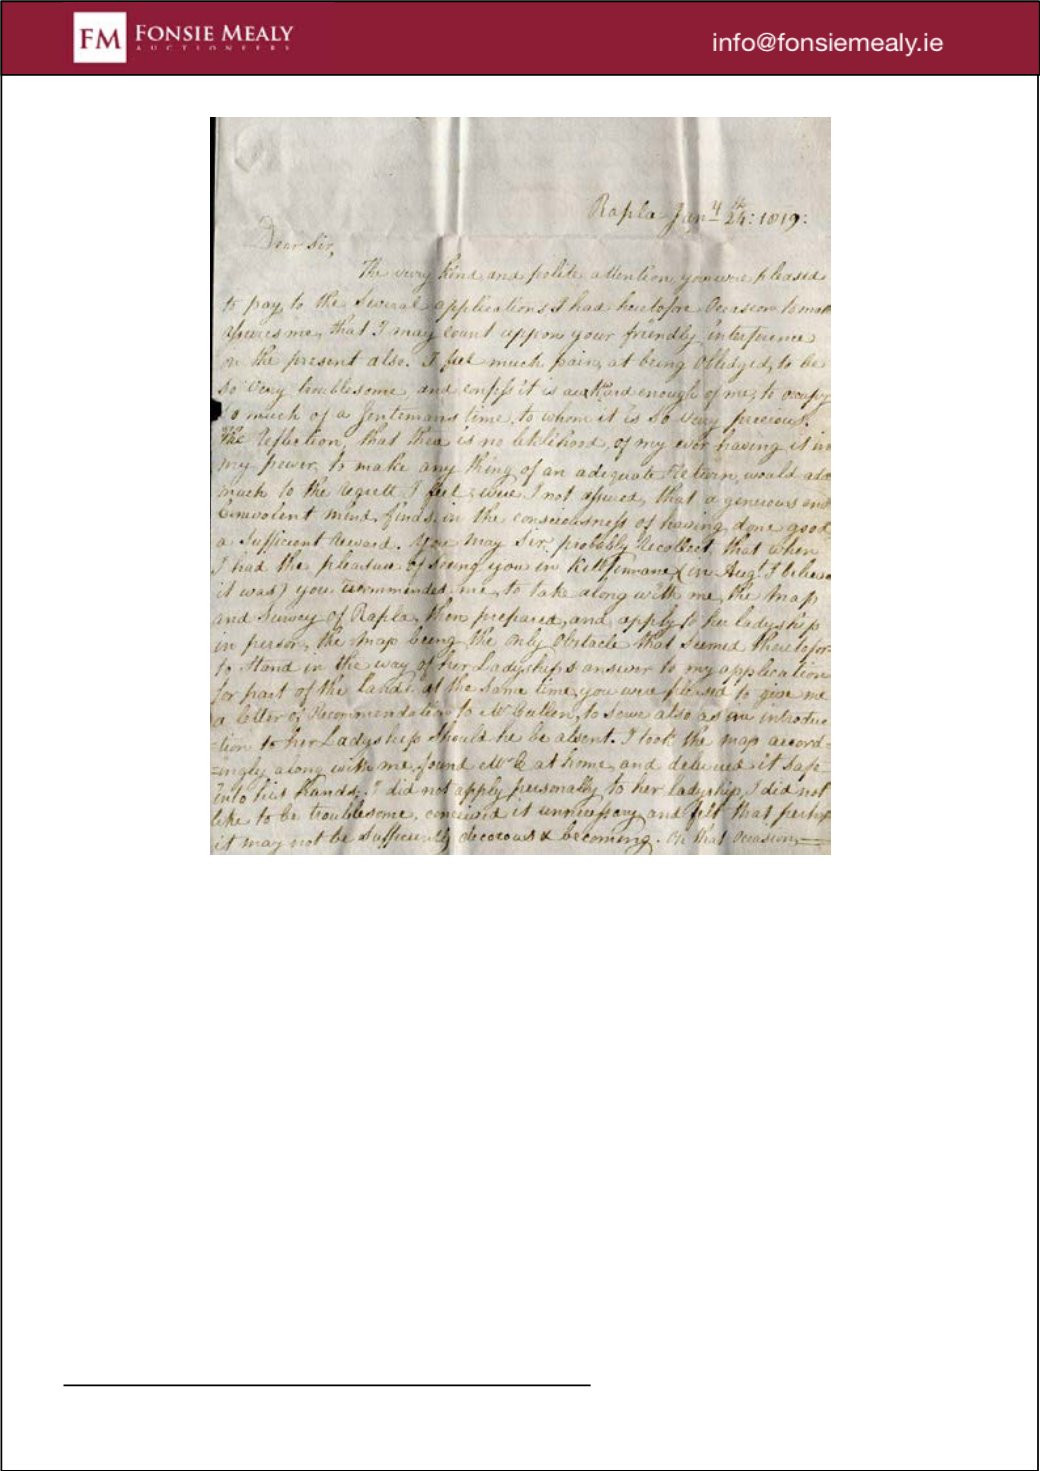 FM FONSIE MEALY
AUCTIONEERS
info@fonsiemealy.ie
Rapla Jan.y 24th: 1819:
Dear Sir,
The very kind and polite attention, you were pleased
to pay, to the Several applications I had heretofore Occasion to make
me, that I may count uppon your friendly interference
in the present also. I feel much pain, at being Obledged, to be
so very troublesome, and confess it is awkward enough of me, to occupy
so much of a Gentemans time, to whom it is so very precious.
The Reflection, that there is no likelihood, of my ever having it in
my power, to make any thing of an adequate Return, would add
much to the regrett I feel, were I not assured, that a generous and
benevolent mind, finds in the consciousness of having done good,
a Sufficient Reward. You may Sir, probably Recollect that when
I had the pleasure of seeing you in Killfinnane, (in Augt. I believe
it was) you recommended me, to take along with me, the Map
and Survey of Rapla, then prepared, and apply to her ladyship
in person, the Map being the Only Obstacle that Seemed theretofore
to Stand in the way of her Ladyships answer to my application
for part of the Lands. at the Same time, you were pleased to give me
a letter of Recommendation to Mr Cullen, to serve also as an introduc
=tion to her Ladyship Should he be absent. I took the map accord=
=ingly along with me, found Mr C at home, and delivered it Safe
into his Hands; I did not apply personally to her ladyship, I did not
like to be troublesome, conceived it unnecessary, and felt that perhaps
it may not be Sufficiently decorous & becoming. On that Occasion,